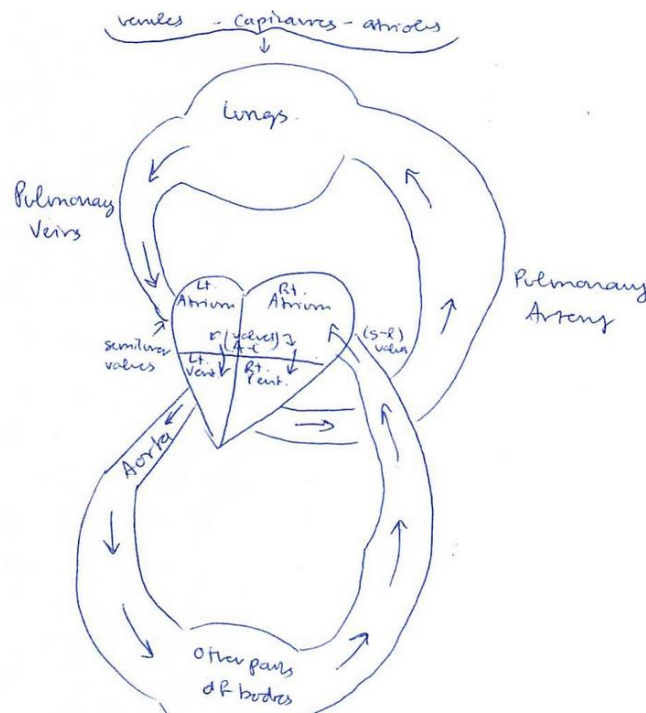 venules - Capillaries - atrioles
Lungs.
Pulmonary
Veins
Pulmonary
Artery
Lt.
Atrium
Rt.
Atrium
(valves)
(S-l)
valves
semilunar
valves
Lt.
Vent.
Rt.
Vent.
Aorta
Other parts
of bodies